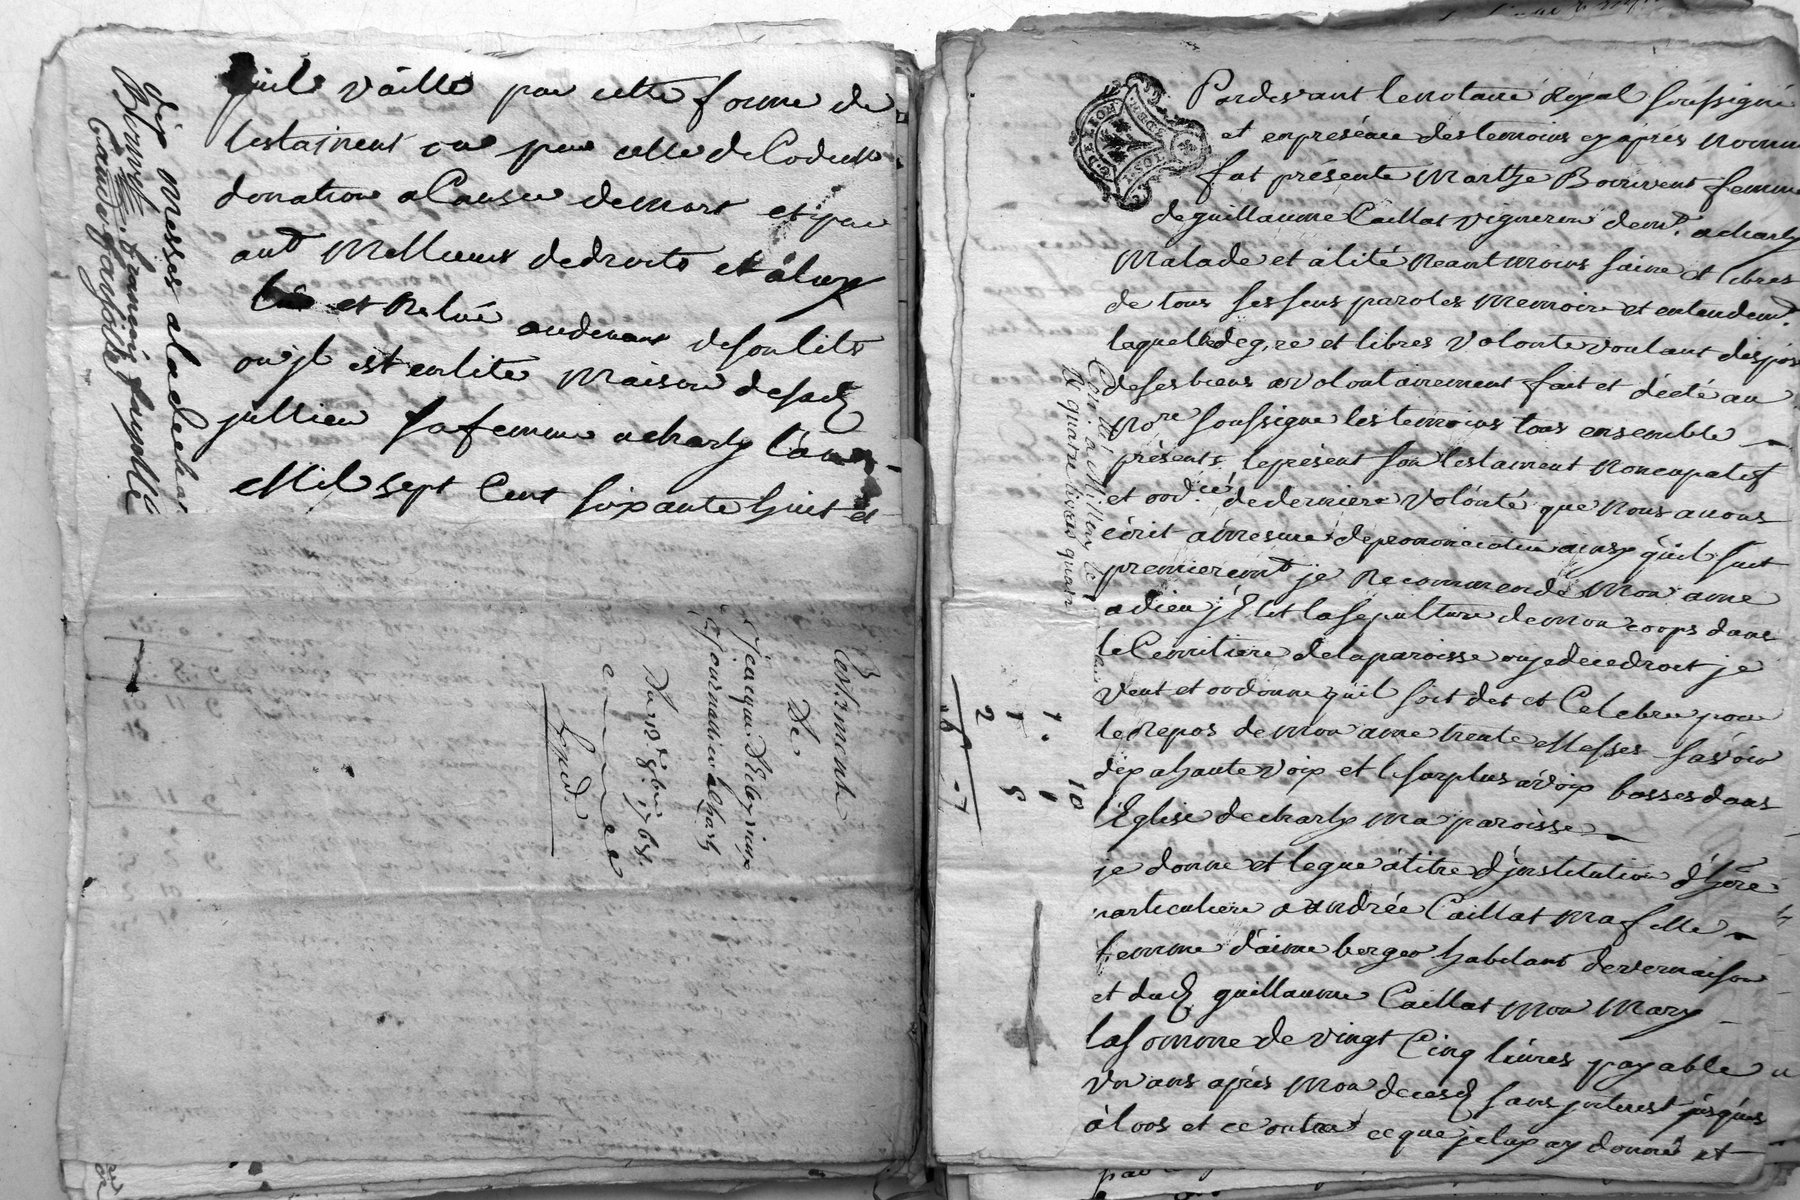 quil vaille par cette forme de
testament ou par celle de Codicill
donation a Cause de mort et par
autt Mellieurs de droits et à luy
lu et Relué audevant de son lits
ou jl est enlité Maison de lad
jullien sa femme a charly L'an
Mil sept Cent soixante huit et
dix Messes a la decha
Testament
De
jacque
journallier a Charly
Du 12e 8bre 1768.
Pardevant le notaire Royal soussigné
et en présence des temoins cy après nommé
fut présente Marthe Bouvent femme
de guillaume Caillat vigneron demt. a charly
Malade et alité neantmoins saine et libres
de tous ses sens paroles Memoire et entendemt.
laquelle de gré et libres volonté voulant dispos
de ses biens a volontairement fait et dicté au
Nore soussigné les temoins tous ensemble
présents le présent son testament noncupatif
et ordce de derniere volonté que Nous avons
écrit à mesure de prononciation ainsy quil suit
premieremt je Recommende Mon ame
a dieu j'Elit la sepulture de mon corps dans
le Cemitiere de la paroisse ou je decedroit je
veut et ordonne quil soit dit et Celebré pour
le Repos de mon ame trente Messes savoir
dix a haute voix et le surplus a voix basses dans
l'Eglise de charly ma paroisse
je donne et legue à titre d'jnstitution d'hóre
particuliere a andrée Caillat ma fille
femme d'aimé berger habitant de vernaison
et dud guillaume Caillat mon Mary
la somme de vingt Cinq livres payable
un ans après Mon decesd sans jnterest jusques
àlors et ce outre ce que je luy ay donné et
10
1. 1
1 5
2